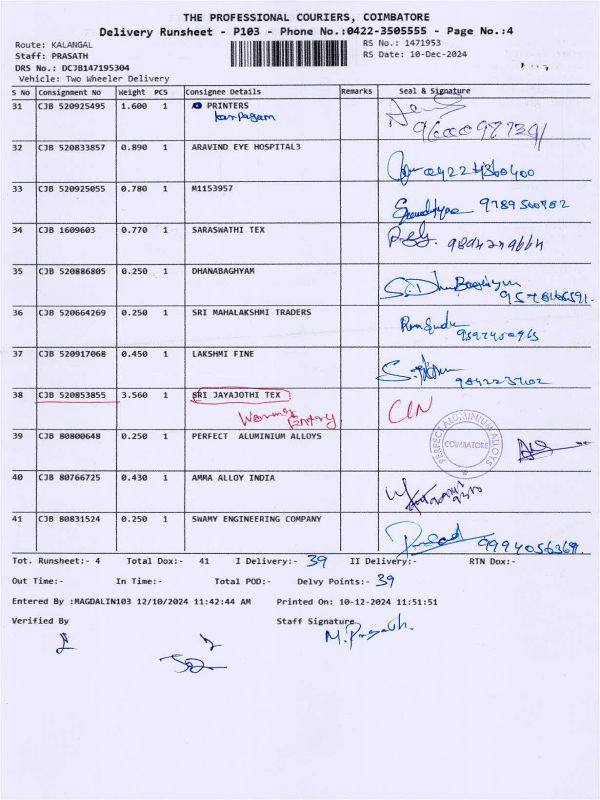 THE PROFESSIONAL COURIERS, COIMBATORE
Delivery Runsheet - P103 - Phone No.:0422-3505555 - Page No.:4
Route: KALANGAL RS No.: 1471953
Staff: PRASATH RS Date: 10-Dec-2024
DRS No.: DCJB147195304
Vehicle: Two Wheeler Delivery
S No Consignment No Weight PCS Consignee Details Remarks Seal & Signature
31 CJB 520925495 1.600 1 PRINTERS
karpagam
32 CJB 520833857 0.890 1 ARAVIND EYE HOSPITAL3
04224360400
33 CJB 520925055 0.780 1 M1153957
9789560782
34 CJB 1609603 0.770 1 SARASWATHI TEX
35 CJB 520886805 0.250 1 DHANABAGHYAM
36 CJB 520664269 0.250 1 SRI MAHALAKSHMI TRADERS
37 CJB 520917068 0.450 1 LAKSHMI FINE
38 CJB 520853855 3.560 1 SRI JAYAJOTHI TEX
39 CJB 80800648 0.250 1 PERFECT ALUMINIUM ALLOYS
PERFECT ALUMINIUM ALLOYS
COIMBATORE
40 CJB 80766725 0.430 1 AMMA ALLOY INDIA
41 CJB 80831524 0.250 1 SWAMY ENGINEERING COMPANY
Tot. Runsheet:- 4 Total Dox:- 41 I Delivery:- 39 II Delivery:- RTN Dox:-
Out Time:- In Time:- Total POD:- Delvy Points:- 39
Entered By :MAGDALIN103 12/10/2024 11:42:44 AM Printed On: 10-12-2024 11:51:51
Verified By Staff Signature
M. Prasath.